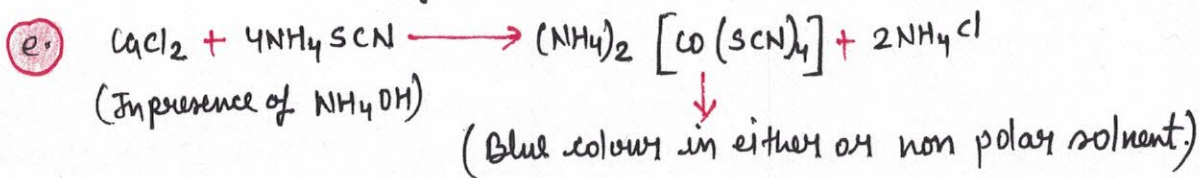 e. CaCl2 + 4NH4SCN ⟶ (NH4)2 [CO(SCN)4] + 2NH4Cl
(In presence of NH4OH) ↓
(Blue colour in either or non polar solvent.)